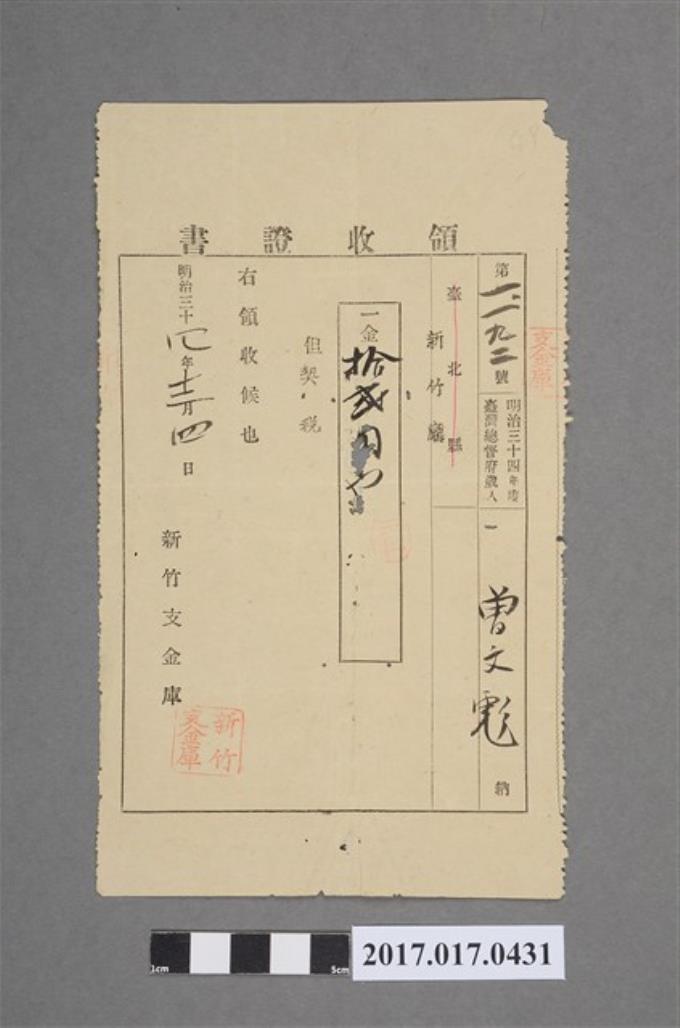 領收證書
第一一九二號
明治三十四年度
臺灣總督府歲入
一
曾文彪
納
臺北縣
新竹廳
一金拾貳圓也
但契稅
右領收候也
明治三十四年十二月四日
新竹支金庫
新竹
支金庫
支金庫
1cm
5cm
2017.017.0431